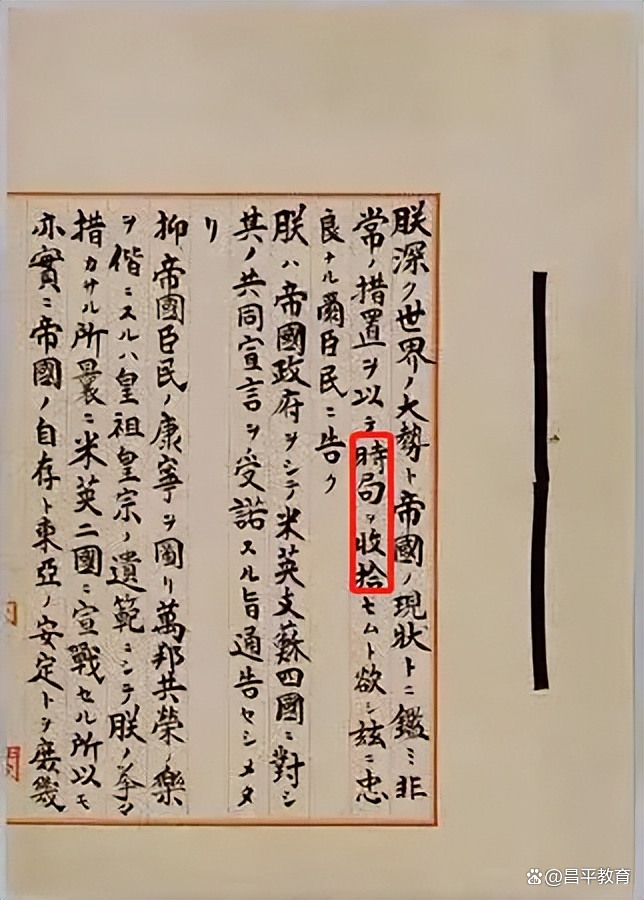 朕深ク世界ノ大勢ト帝國ノ現狀トニ鑑ミ非
常ノ措置ヲ以テ時局ヲ收拾セムト欲シ茲ニ忠
良ナル爾臣民ニ告ク
朕ハ帝國政府ヲシテ米英支蘇四國ニ對シ
其ノ共同宣言ヲ受諾スル旨通告セシメタ
リ
抑帝國臣民ノ康寧ヲ圖リ萬邦共榮ノ樂
ヲ偕ニスルハ皇祖皇宗ノ遺範ニシテ朕ノ拳々
措カサル所曩ニ米英二國ニ宣戰セル所以モ
亦實ニ帝國ノ自存ト東亞ノ安定トヲ庶幾
@昌平教育